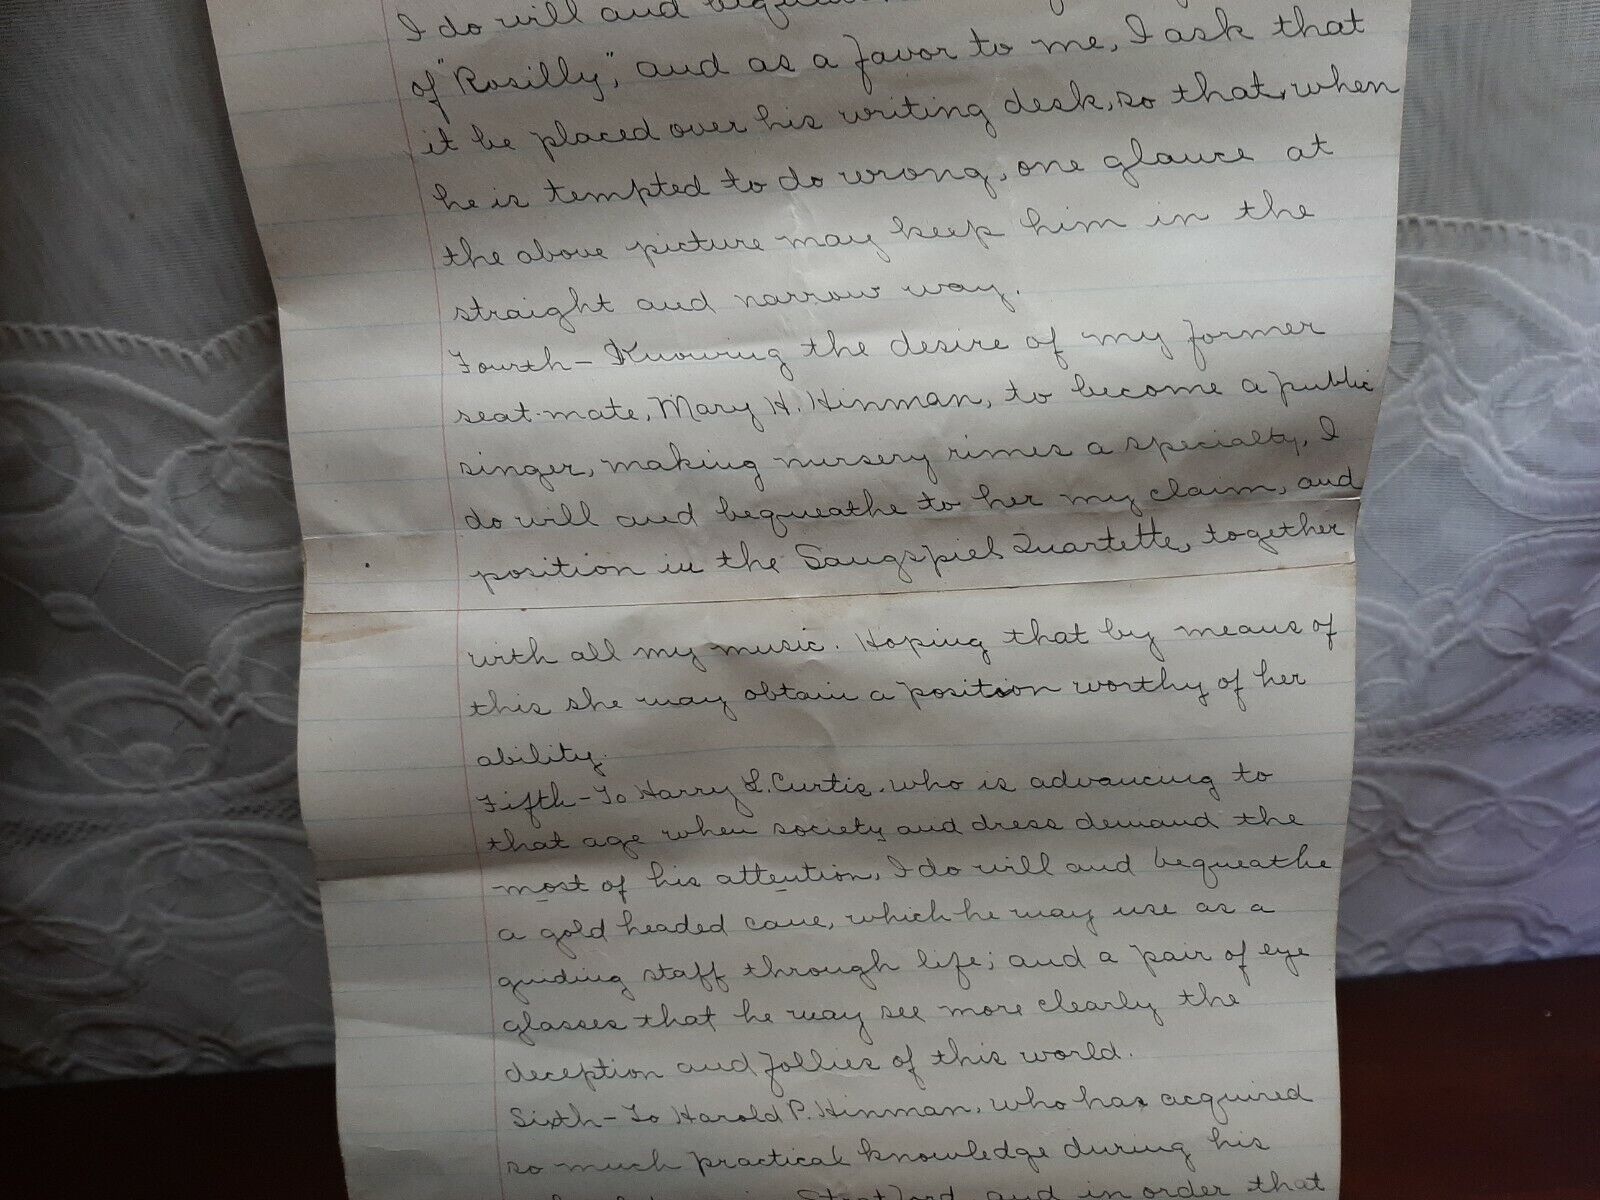 I do will and
of "Rosilly", and as a favor to me, I ask that
it be placed over his writing desk, so that, when
he is tempted to do wrong, one glance at
the above picture may keep him in the
straight and narrow way.
Fourth - Knowing the desire of my former
seat-mate, Mary H. Hinman, to become a public
singer, making nursery rimes a specialty, I
do will and bequeathe to her my claim, and
position in the Saugspiel Quartette, together
with all my music. Hoping that by means of
this she may obtain a position worthy of her
ability.
Fifth - To Harry L. Curtis, who is advancing to
that age when society and dress demand the
most of his attention, I do will and bequeathe
a gold headed cane, which he may use as a
guiding staff through life; and a pair of eye
glasses that he may see more clearly the
deception and follies of this world.
Sixth - To Harold P. Hinman, who has acquired
so much practical knowledge during his
and in order that